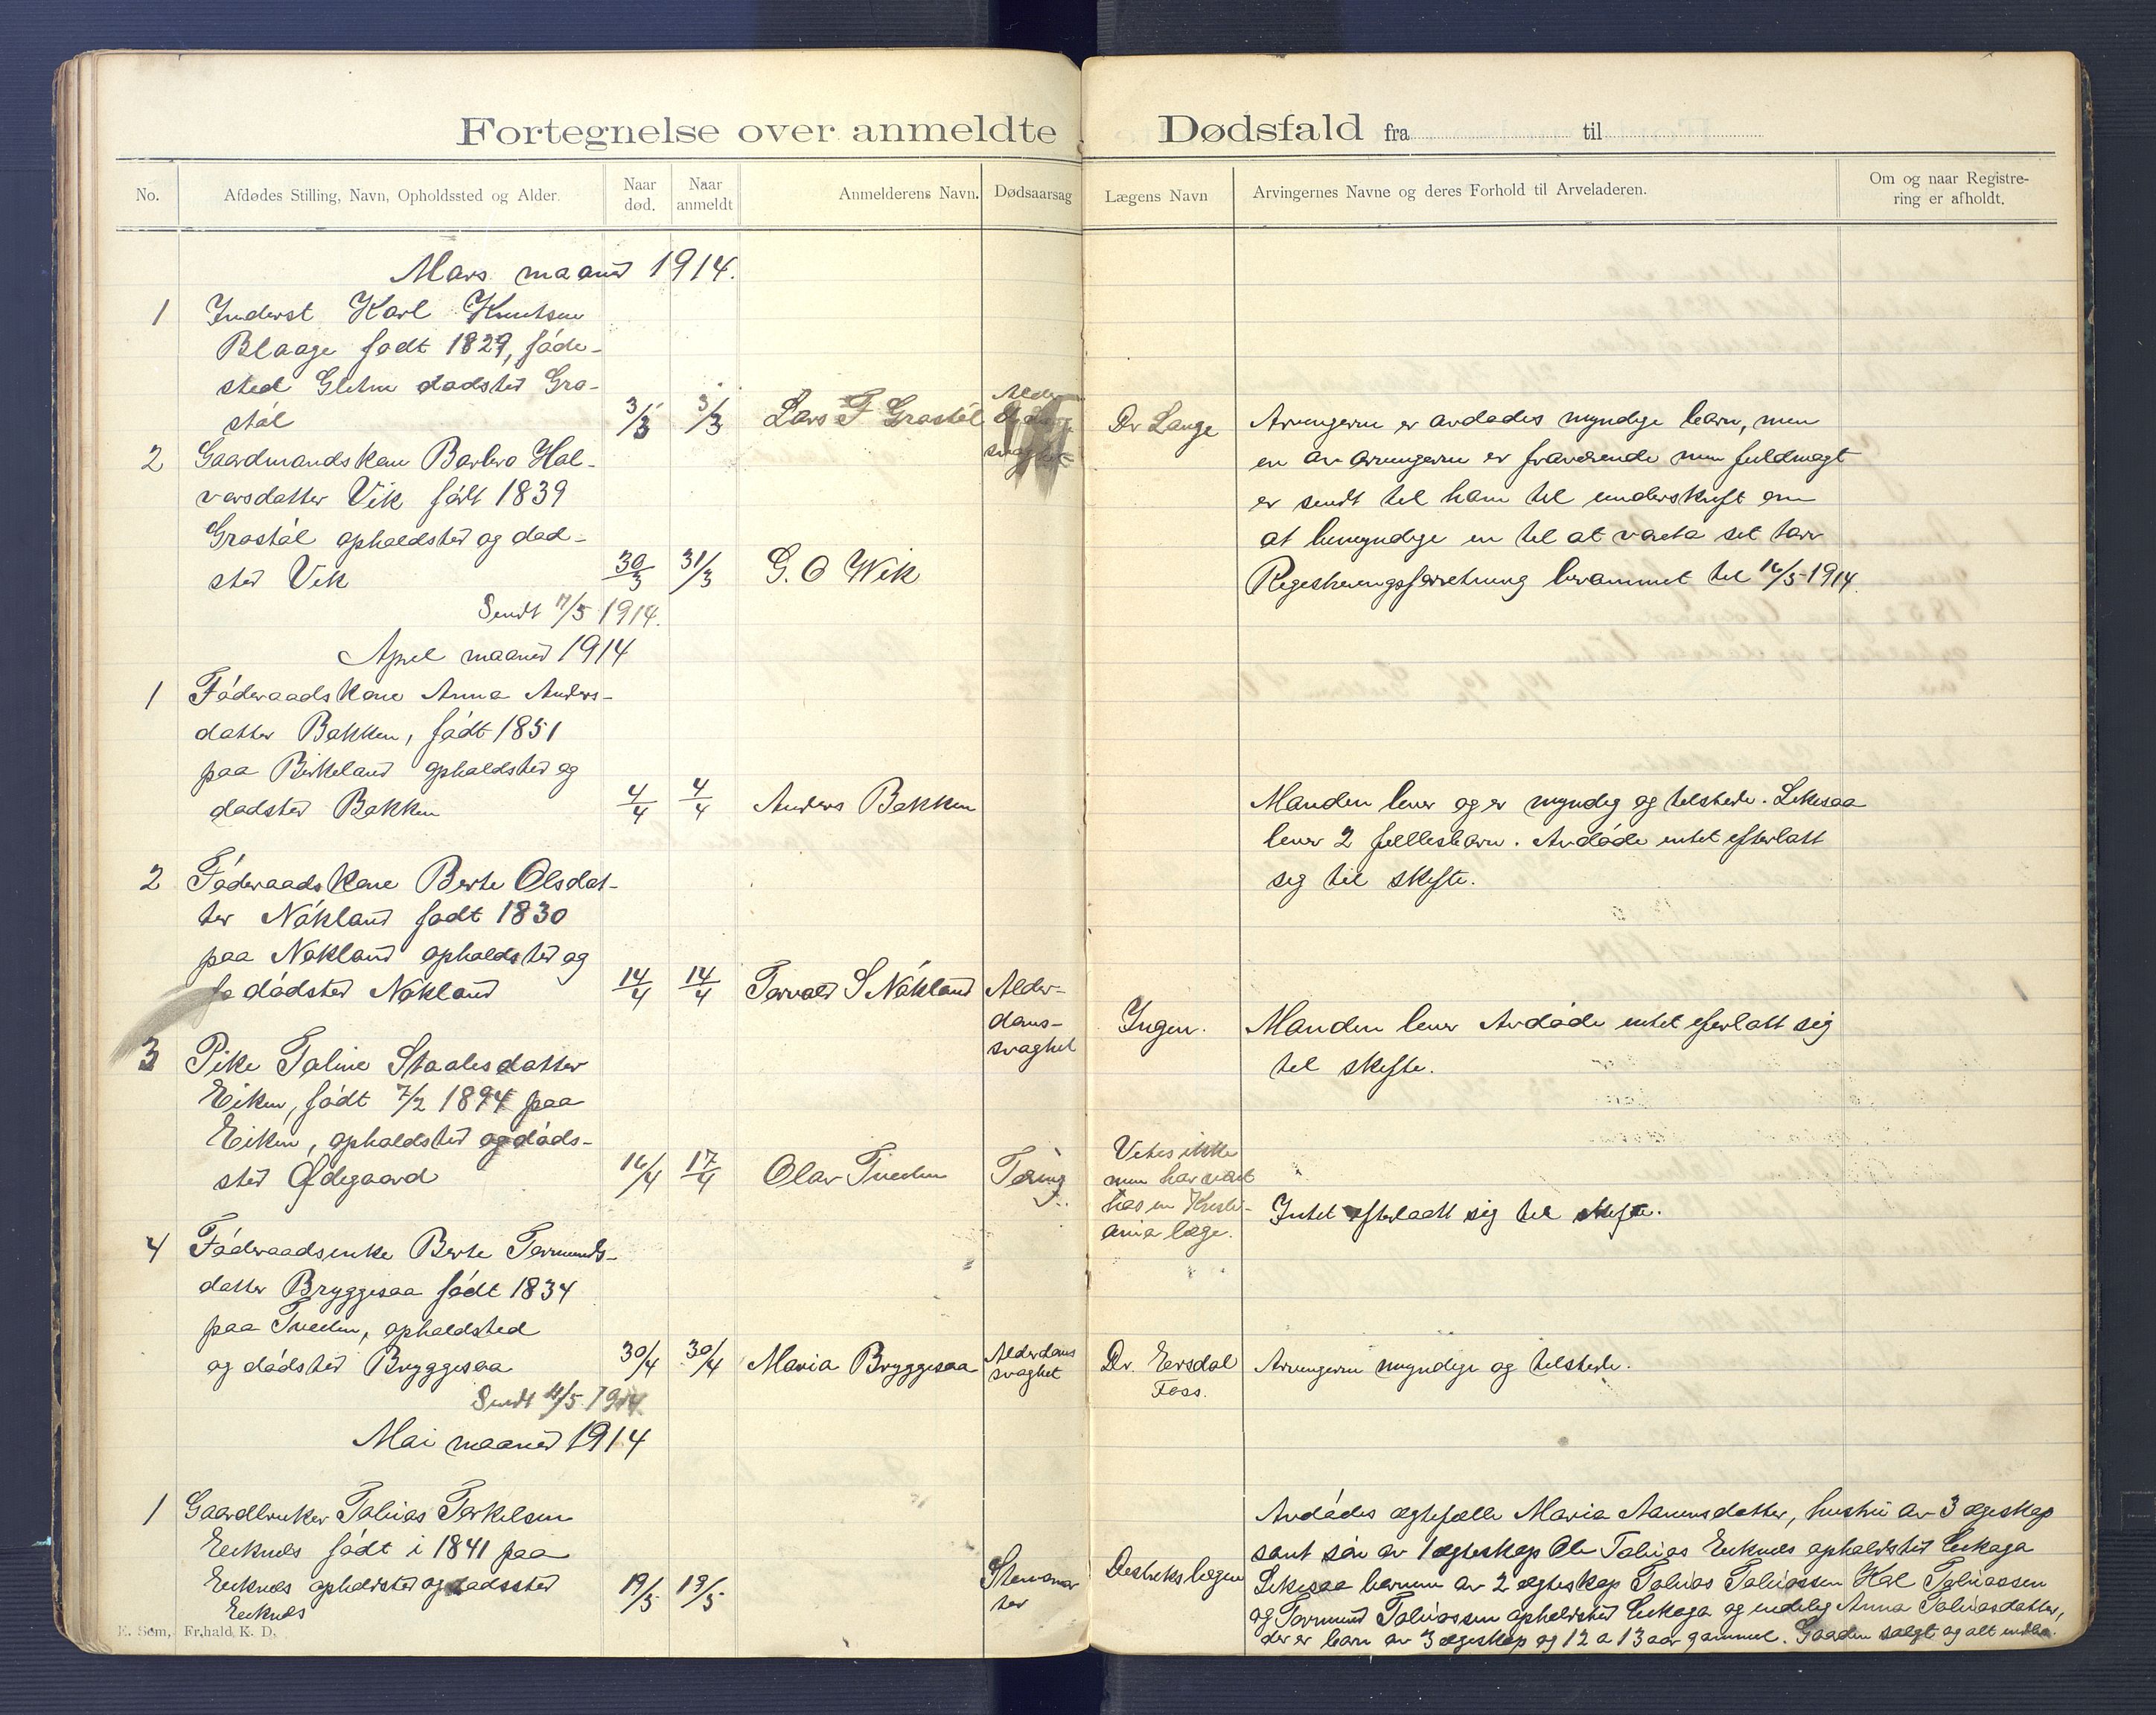 Fortegnelse over anmeldte Dødsfald fra til
No. Afdødes Stilling, Navn, Opholdssted og Alder. Naar død. Naar anmeldt Anmelderens Navn. Dødsaarsag Lægens Navn Arvingernes Navne og deres Forhold til Arveladeren. Om og naar Registrering er afholdt.
Mars maaned 1914.
1 Inderst Karl Knutsen
Blaage født 1829, føde-
sted dødsted Gro-
støl 3/3 3/3 Lars T Grostøl Dr Lange
Arvingerne er avdødes myndige barn, men
2 Gaardmandskone Barbro Hal-
en av arvingerne er fraværende men fuldmagt
vorsdatter Vik født 1839
er sendt til ham til underskrift om
Grostøl opholdsted og død-
at bemyndige en til at vareta set tarv
sted Vik 30/3 31/3 G. O Wik
Registreringsforretning berammet til 16/5-1914.
Sendt 11/5 1914.
April maaned 1914
1 Føderaadskone Anna Anders-
datter Bakken, født 1851
paa Birkeland opholdsted og
dødsted Bakken 4/4 4/4 Anders Bakken
Manden lever og er myndig og tilstede. Likesaa
lever 2 fellesbarn. Avdøde intet efterlatt
sig til skifte.
2 Føderaadskone Berte Olsdat-
ter Nøkland født 1830
paa Nøkland opholdsted og
dødsted Nøkland 14/4 14/4 Torvald S Nøkland Alder-
doms-
svaghet
Ingen. Manden lever Avdøde intet eferlatt sig
til skifte.
3 Pike Taline Staalesdatter
Eiken, født 7/2 1894 paa
Eiken, opholdsted og døds-
sted Ødegaard 16/4 17/4 Olav Tveden Tæring
Vites ikke
men har vært
hos en Kristi-
ania læge.
Intet efterladt sig til skifte.
4 Føderaadsenke Berte Tormunds-
datter Bryggesaa født 1834
paa Tveden, opholdsted
og dødsted Bryggesaa 30/4 30/4 Maria Bryggesaa Alderdoms
svaghet
Dr. Eersdal
Foss.
Arvingerne myndige og tilstede.
Sendt 4/5 1914
Mai maaned 1914
1 Gaardbruker Tobias Torkelsen
Eeknes født i 1841 paa
Eeknes opholdsted og dødssted
Eeknes 19/5 19/5 Distrikslægen
Avdødes ægtefælle Maria Aanensdatter, hustru av 3 ægeskap
samt søn av 1 ægteskap Ole Tobias Eeknes opholdsted
Likesaa barnene av 2 ægteskap Tobias Tobiassen Tobiassen
og Tormund Tobiassen opholdsted og endelig Anna Tobiasdatter,
der er barn av 3 ægeskap og 12 a 13 aar gammel. Gaarden solgt og alt
E. Sem, Fr.hald K. D.